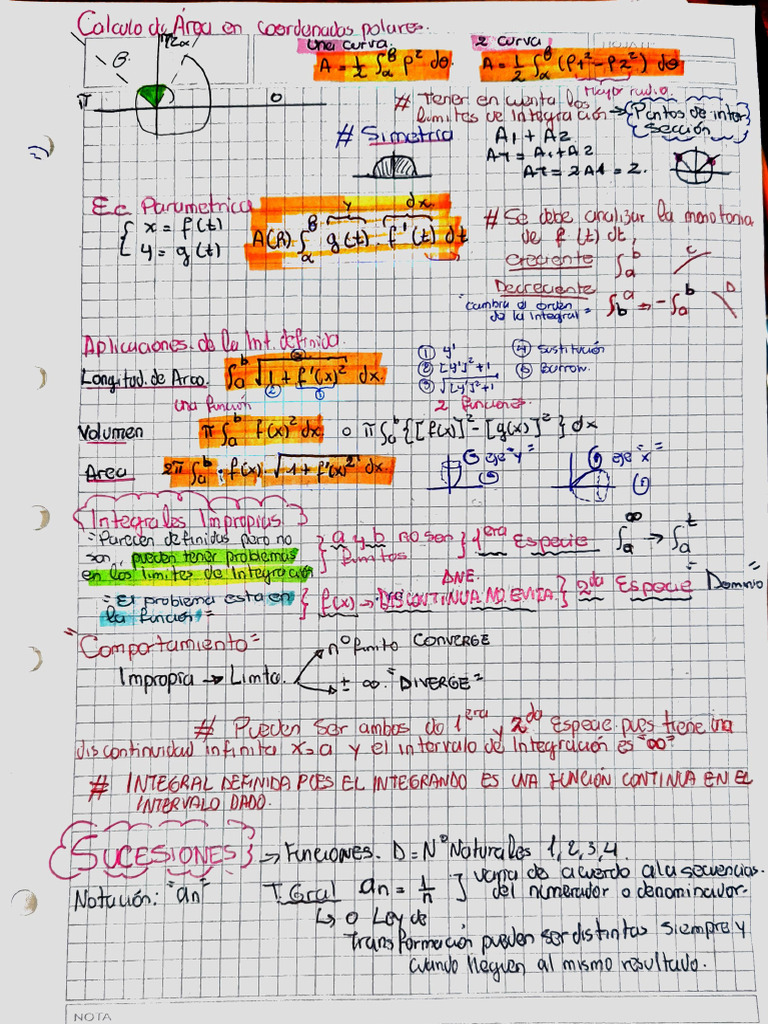 Calculo de Área en coordenadas polares.
Una curva.
2 curva
A = 1/2 ∫αᵝ ρ² dθ
A = 1/2 ∫αᵝ (ρ1² - ρ2²) dθ
Mayor radio.
π/2
θ
π
0
# Tener en cuenta los
limites de integración → Puntos de inter
sección
# Simetria
A1 + A2
AT = A1 + A2
AT = 2A1 = 2.
Ec Parametrica
{ x = f(t)
y = g(t)
A(R) ∫αᵝ g(t) · f'(t) dt
y
dx
# Se debe analizar la monotonia
de f (t) dt,
Creciente ∫ₐᵇ C
Decreciente D
"cambia el orden
de la integral = ∫bᵃ → -∫ₐᵇ
Aplicaciones de la Int. definida.
Longitud de Arco. ∫ₐᵇ √1 + f'(x)² dx.
② ①
① y'
② [y']² + 1
③ √[y']² + 1
④ Sustitución
⑤ Barrow.
una función
2 funciones
Volumen π ∫ₐᵇ f(x)² dx o π ∫ₐᵇ {[f(x)]² - [g(x)]²} dx
Area 2π ∫ₐᵇ f(x) · √1 + f'(x)² dx.
eje "y"
eje "x"
Integrales Impropias
= Parecen definidas pero no
son, pueden tener problemas
en los limites de integración
} a y b no son
limites } 1era Especie ∫ₐ^∞ → ∫ₐᵗ
= El problema esta en
la función =
DNE.
{ f(x) → DISCONTINUA NO EXISTA. } 2da Especie "Dominio"
"Comportamiento"
Impropia → Limite.
nº finito CONVERGE
± ∞. "DIVERGE"
# Pueden ser ambos de 1era y 2da Especie pues tiene una
discontinuidad infinita x=a y el intervalo de integración es "∞"
# INTEGRAL DEFINIDA PUES EL INTEGRANDO ES UNA FUNCIÓN CONTINUA EN EL
INTERVALO DADO.
{SUCESIONES} → Funciones. D = Nº Naturales 1, 2, 3, 4.
Notación: "an" T. Gral an = 1/n } varia de acuerdo a la secuencias.
del numerador o denominador.
↳ o Ley de
Transformación pueden ser distintas siempre y
cuando lleguen al mismo resultado.
NOTA